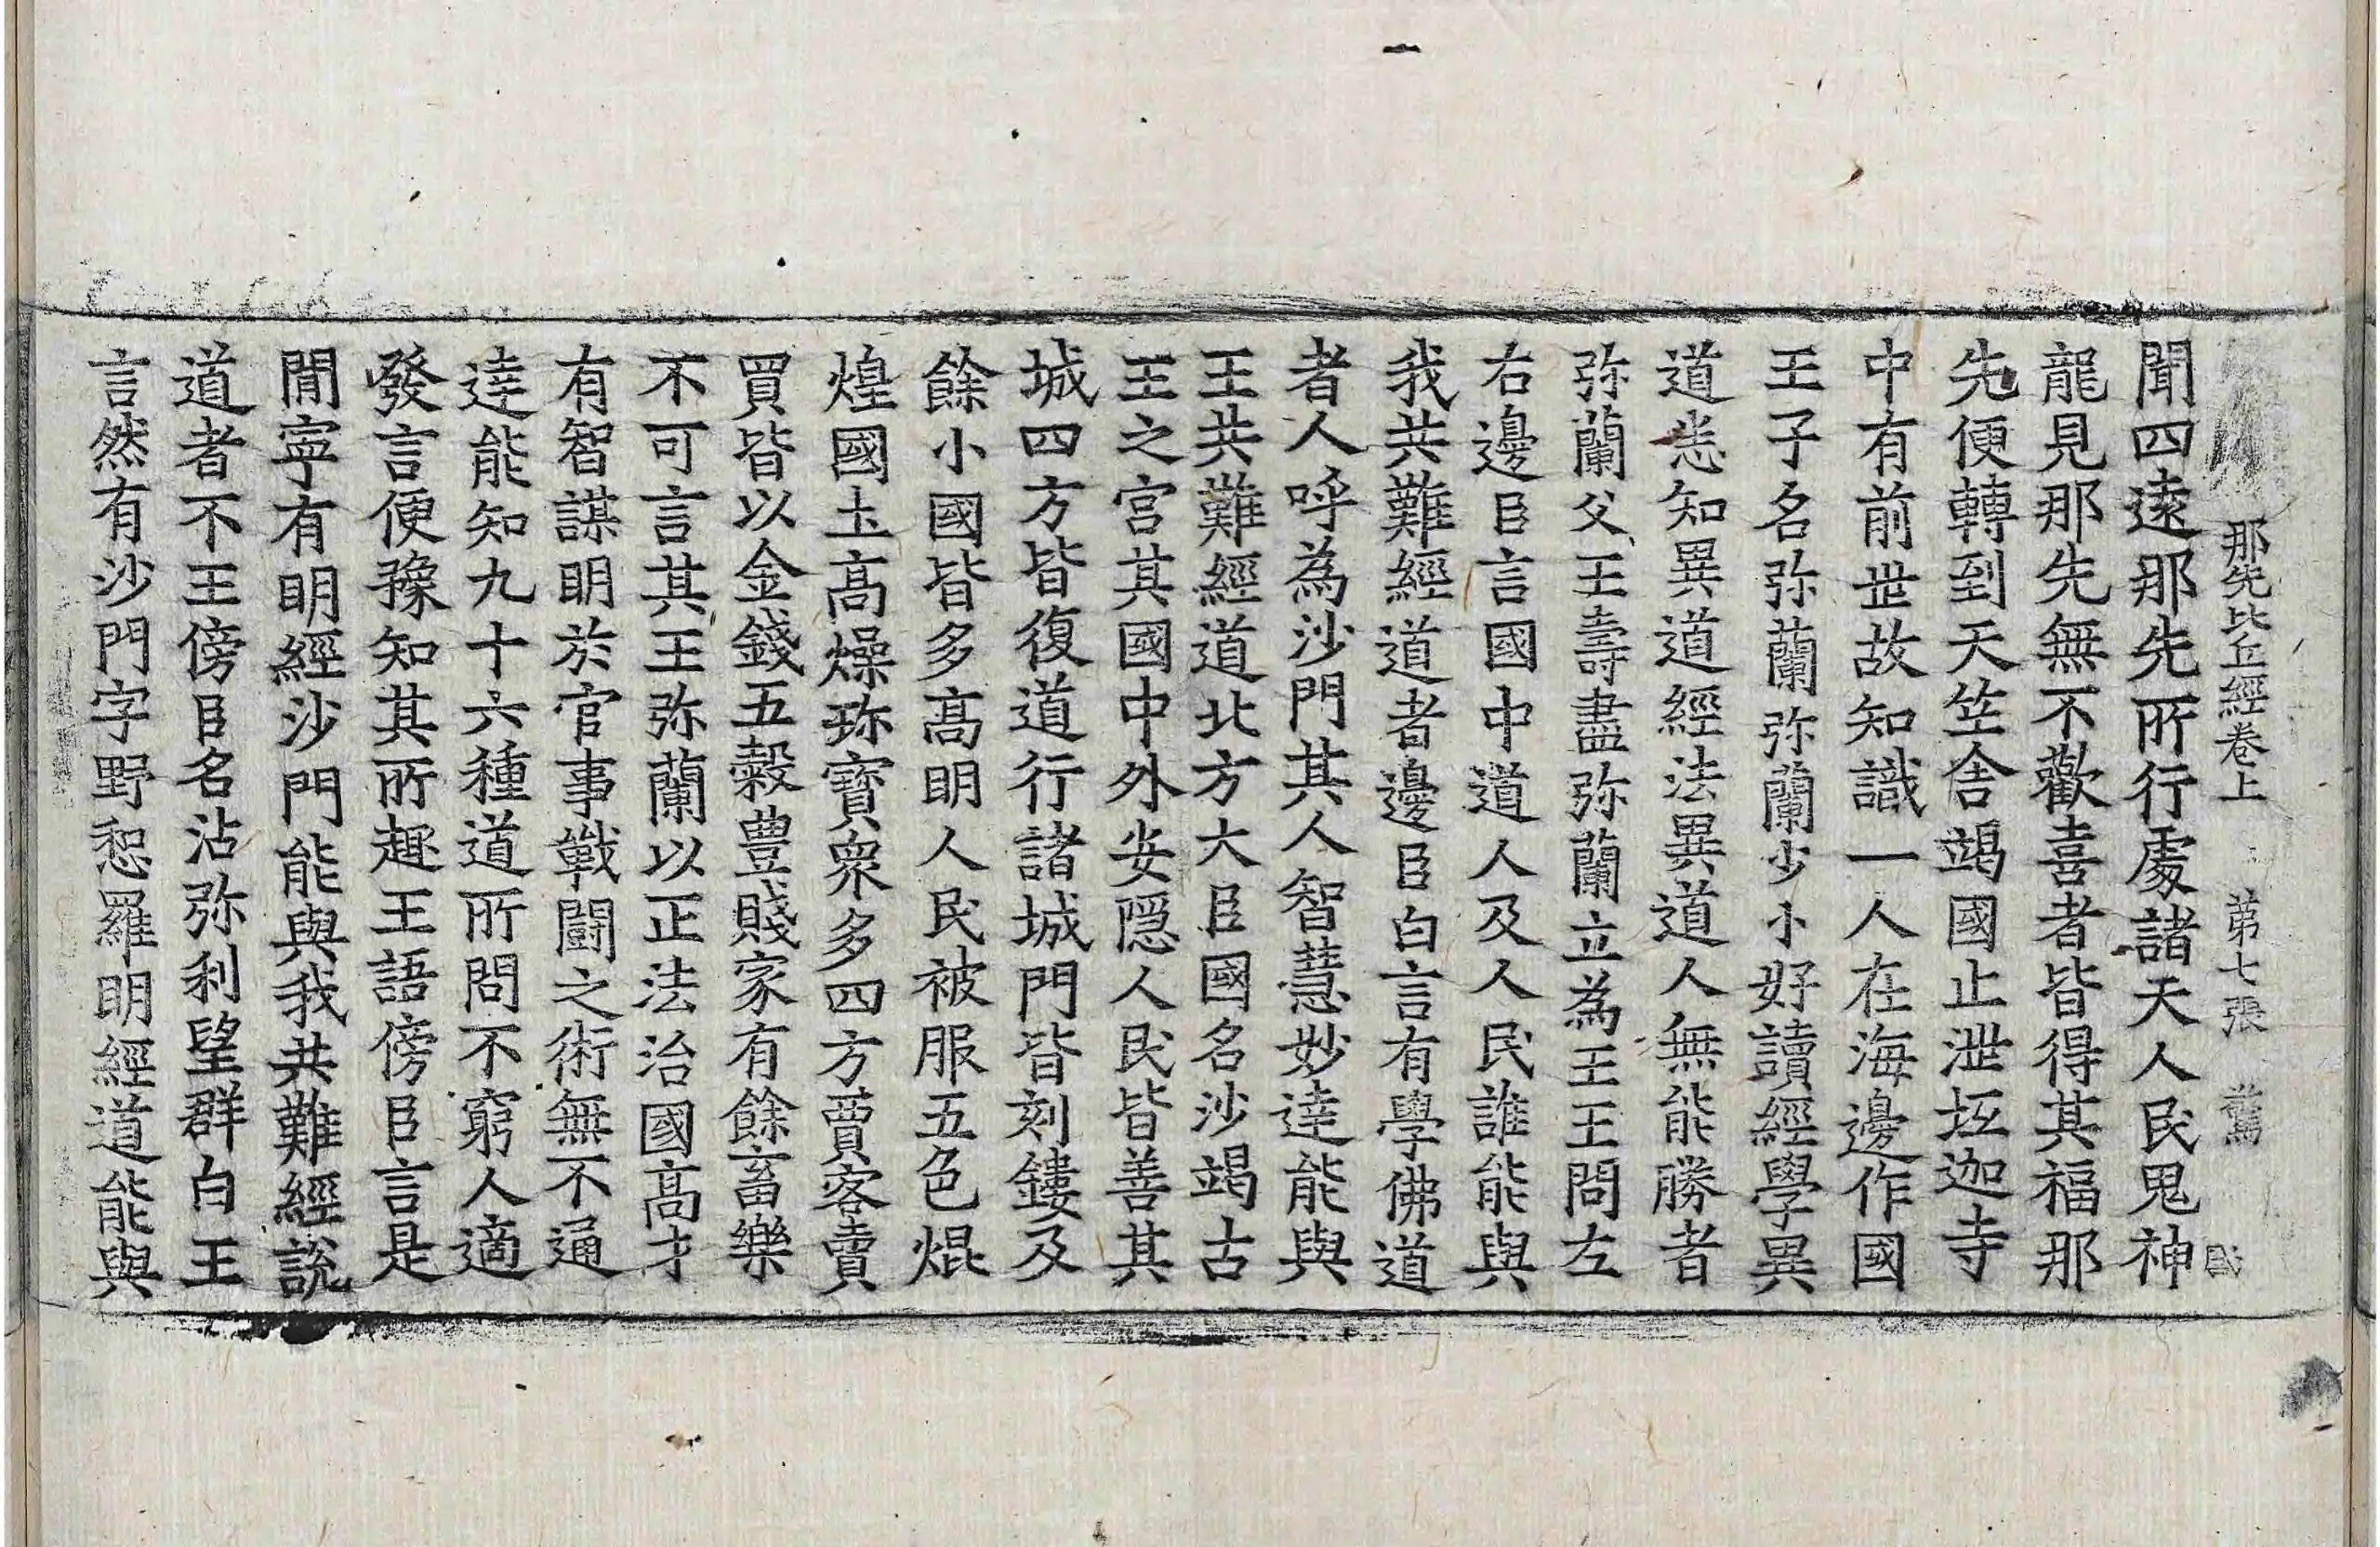 那先比丘經卷上 第七張 驚
聞四遠那先所行處諸天人民鬼神
龍見那先無不歡喜者皆得其福那
先便轉到天竺舍竭國止泄坻迦寺
中有前世故知識一人在海邊作國
王子名弥蘭弥蘭少小好讀經學異
道悉知異道經法異道人無能勝者
弥蘭父王壽盡弥蘭立為王王問左
右邊臣言國中道人及人民誰能與
我共難經道者邊臣白言有學佛道
者人呼為沙門其人智慧妙達能與
王共難經道北方大臣國名沙竭古
王之宮其國中外安隱人民皆善其
城四方皆復道行諸城門皆刻鏤及
餘小國皆多高明人民被服五色焜
煌國土高燥珎寶衆多四方賈客賣
買皆以金錢五穀豊賤家有餘畜樂
不可言其王弥蘭以正法治國高才
有智謀明於官事戰鬪之術無不通
達能知九十六種道所問不窮人適
發言便豫知其所趣王語傍臣言是
間寧有明經沙門能與我共難經說
道者不王傍臣名沾弥利望群白王
言然有沙門字野惒羅明經道能與